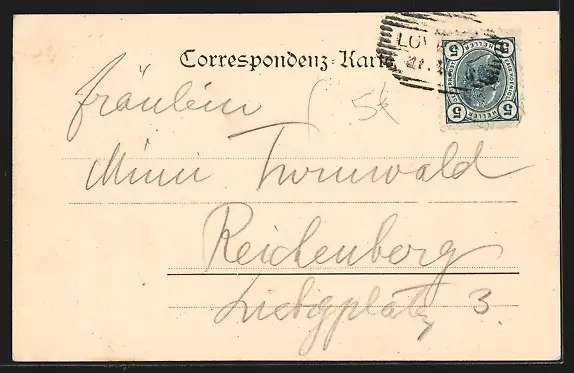 Correspondenz-Karte
LOV
5 HELLER 5
5 HELLER 5
Fräulein
5k
Mimi Turnwald
Reichenberg
Liebigplatz 3.